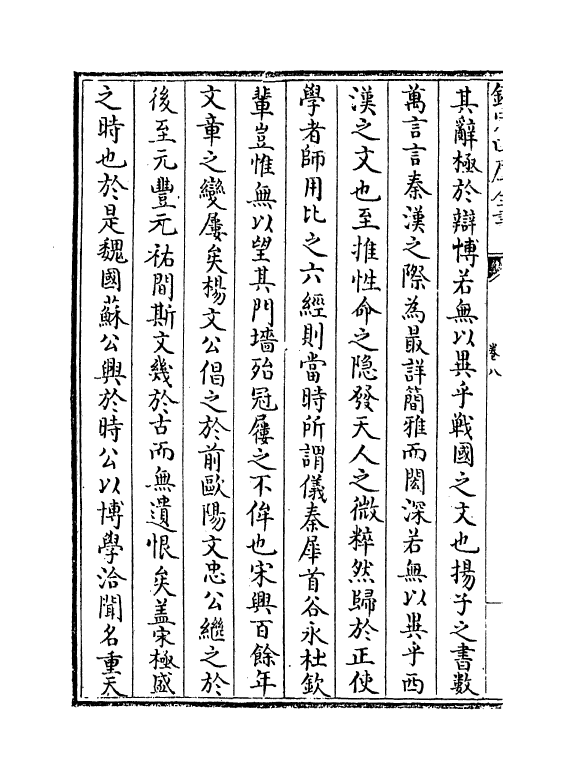 其辭極於辯博若無以異乎戰國之文也揚子之書數
萬言言秦漢之際為最詳簡雅而閎深若無以異乎西
漢之文也至推性命之隐發天人之微粹然歸於正使
學者師用比之六經則當時所謂儀秦犀首谷永杜欽
輩豈惟無以望其門墻殆冠屨之不侔也宋興百餘年
文章之變屢矣楊文公倡之於前歐陽文忠公繼之於
後至元豐元祐間斯文幾於古而無遺恨矣盖宋極盛
之時也於是魏國蘇公興於時公以博學洽聞名重天
卷八